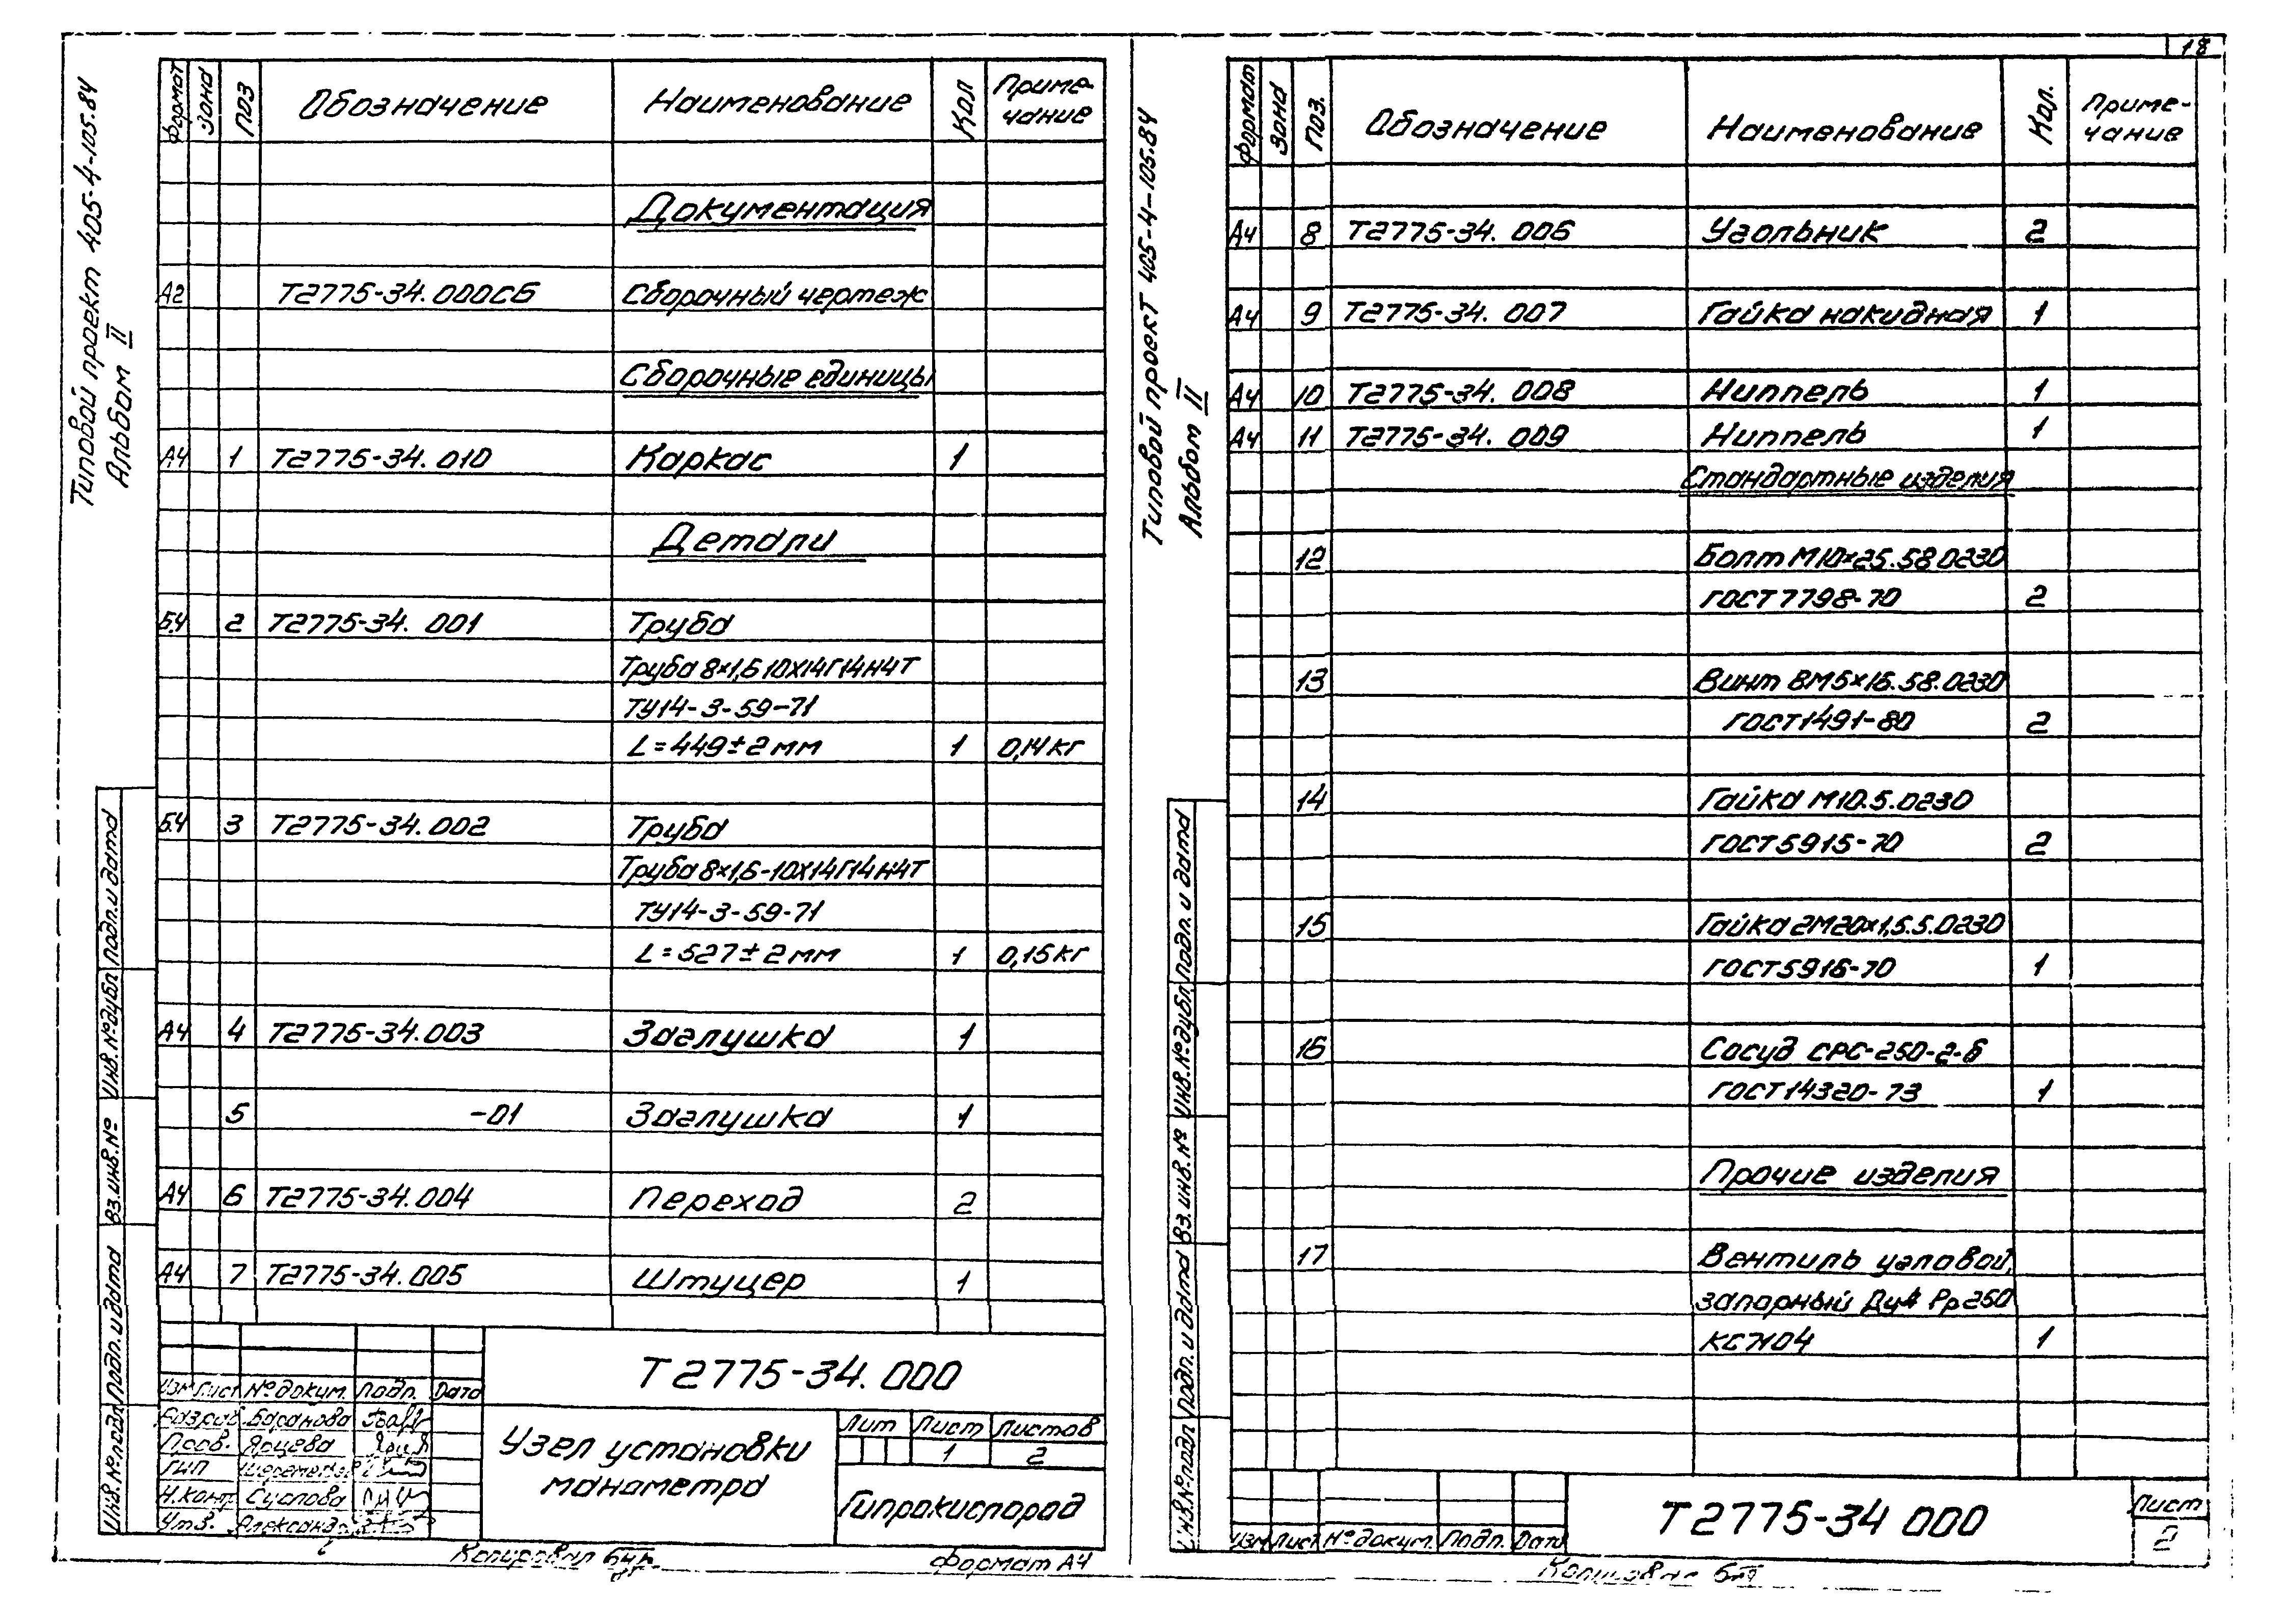 18
Типовой проект 405-4-105.84
Альбом II
Формат Зона Поз Обозначение Наименование Кол Приме-
чание
Документация
А2 Т2775-34.000СБ Сборочный чертеж
Сборочные единицы
А4 1 Т2775-34.010 Каркас 1
Детали
Б4 2 Т2775-34. 001 Труба
Труба 8×1,6 10Х14Г14Н4Т
ТУ14-3-59-71
L=449±2мм 1 0,14кг
Б4 3 Т2775-34.002 Труба
Труба 8×1,6-10Х14Г14Н4Т
ТУ14-3-59-71
L=527±2мм 1 0,15кг
А4 4 Т2775-34.003 Заглушка 1
5 -01 Заглушка 1
А4 6 Т2775-34.004 Переход 2
А4 7 Т2775-34.005 Штуцер 1
Инв.№подл Подп.и дата Вз.инв.№ Инв.№дубл Подп.и дата
Т2775-34.000
Изм Лист №докум. Подп. Дата
Разраб Баранова
Пров. Ярцева
ГИП
Н.контр Суслова
Утв.
Узел установки
манометра
Лит Лист Листов
1 2
Гипрокислород
Копировал
Формат А4
Типовой проект 405-4-105.84
Альбом II
Формат Зона Поз. Обозначение Наименование Кол. Приме-
чание
А4 8 Т2775-34. 006 Угольник 2
А4 9 Т2775-34. 007 Гайка накидная 1
А4 10 Т2775-34. 008 Ниппель 1
А4 11 Т2775-34. 009 Ниппель 1
Стандартные изделия
12 Болт М10×25.58.0230
ГОСТ7798-70 2
13 Винт ВМ5×16.58.0230
ГОСТ1491-80 2
14 Гайка М10.5.0230
ГОСТ5915-70 2
15 Гайка 2М20×1,5.5.0230
ГОСТ5916-70 1
16 Сосуд СРС-250-2-б
ГОСТ14320-73 1
Прочие изделия
17 Вентиль угловой,
запорный Ду4 Рр250
КС7104 1
Инв.№подл Подп. и дата Вз.инв.№ Инв.№дубл. Подп. и дата
Изм Лист №докум. Подп. Дата
Т2775-34 000
Лист
2
Копировал